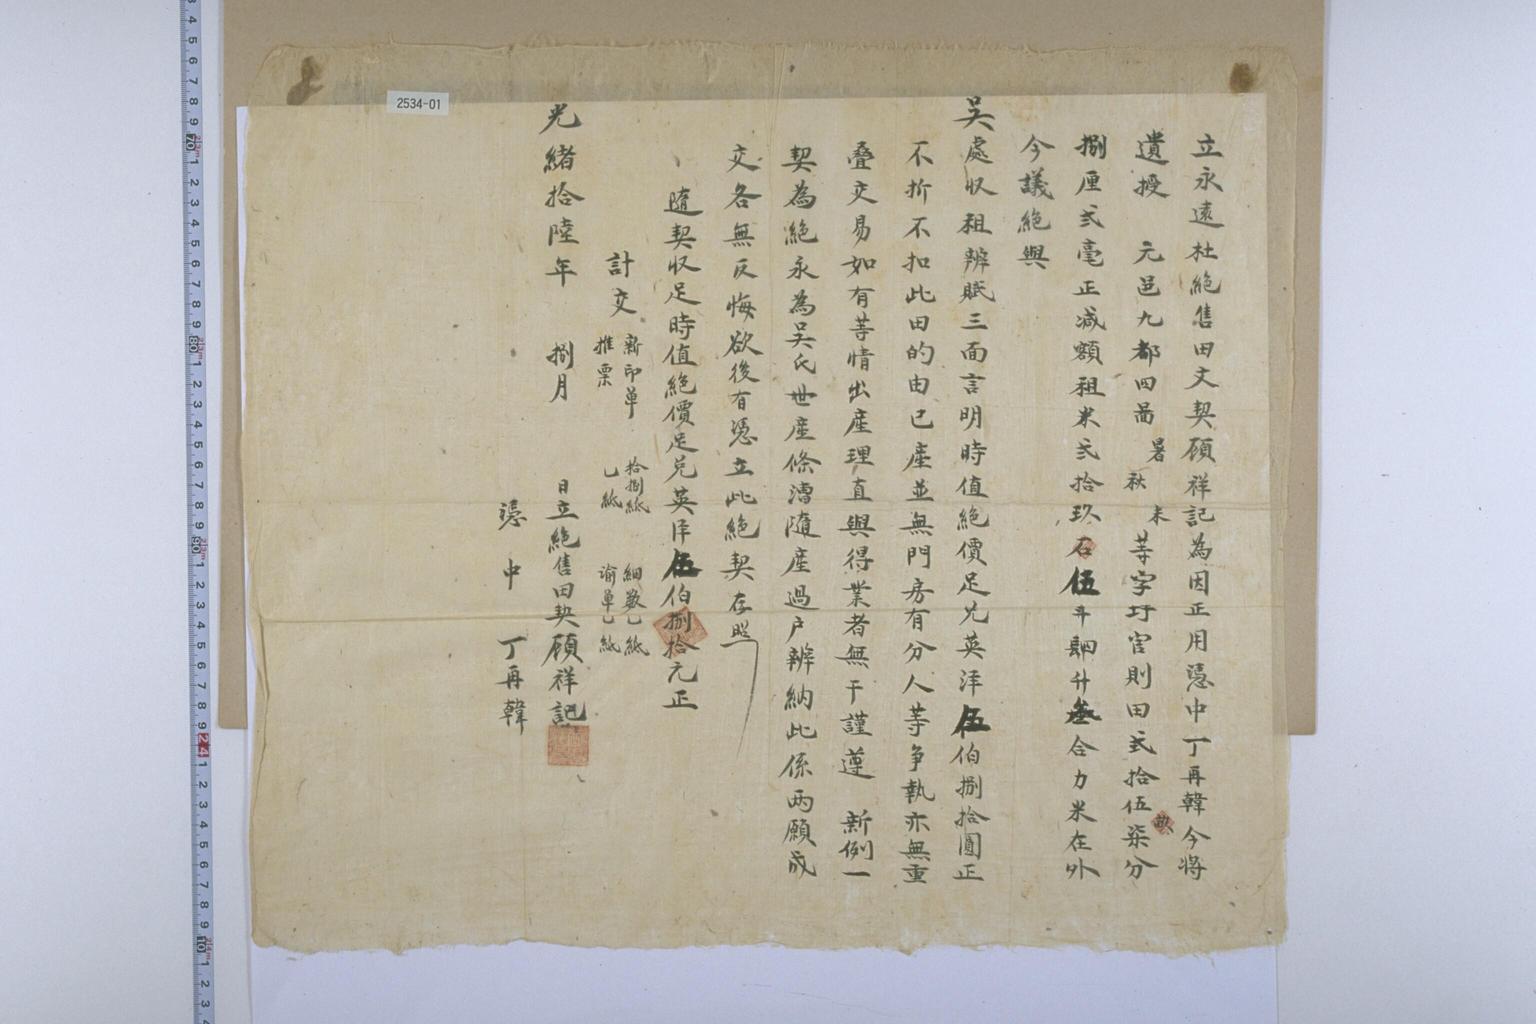 立永遠杜絕售田文契顾祥記為因正用憑中丁再韓今將
遺授　元邑九都四啚暑秋末等字圩官則田弍拾伍畝柒分
捌厘弍毫正减額租米弍拾玖石伍斗肆升叁合力米在外
今議絕與
吴處收租辦賦三面言明時值絕價足兑英洋伍伯捌拾圓正
不折不扣此田的由已產並無門房有分人等爭執亦無重
叠交易如有等情出產理直與得業者無干謹遵　新例一
契為絕永為吴氏世產條漕隨產過户辦納此係両願成
交各無反悔欲後有憑立此絕契存照
隨契收足時值絕價足兑英洋伍伯捌拾元正
計交
新印单　拾捌紙　細数乙紙
推票　乙紙　谕单乙紙
光緒拾陸年　捌月　日立絕售田契顾祥記
憑中　丁再韓
2534-01